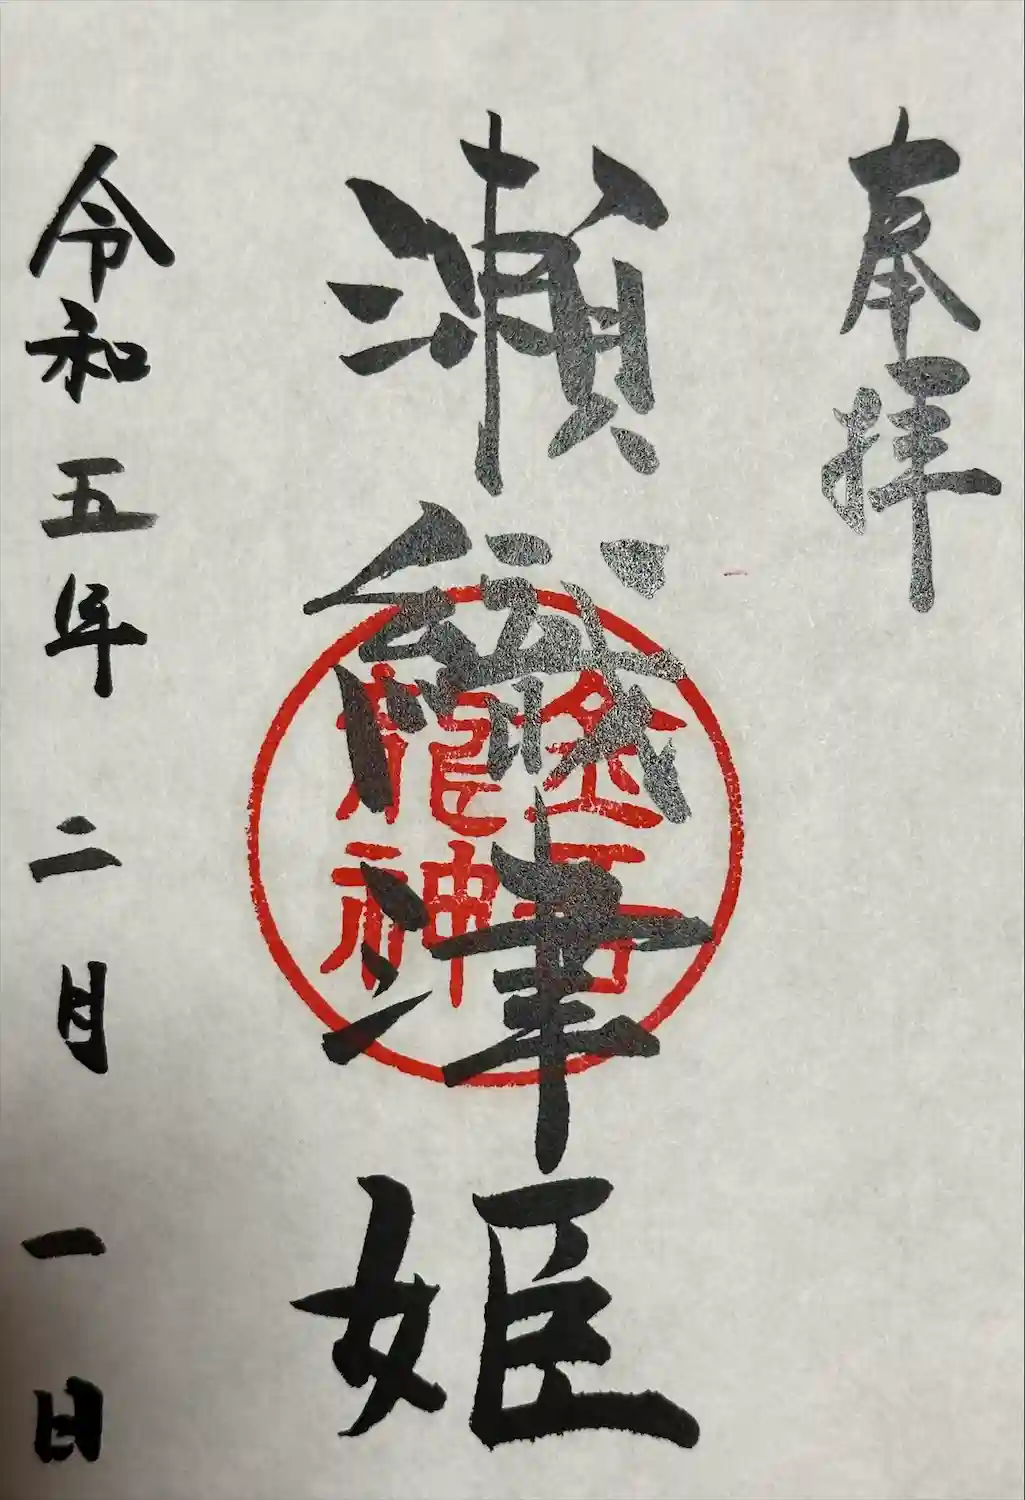 奉拝
瀬織津姫
龍神
令和五年 二月 一日